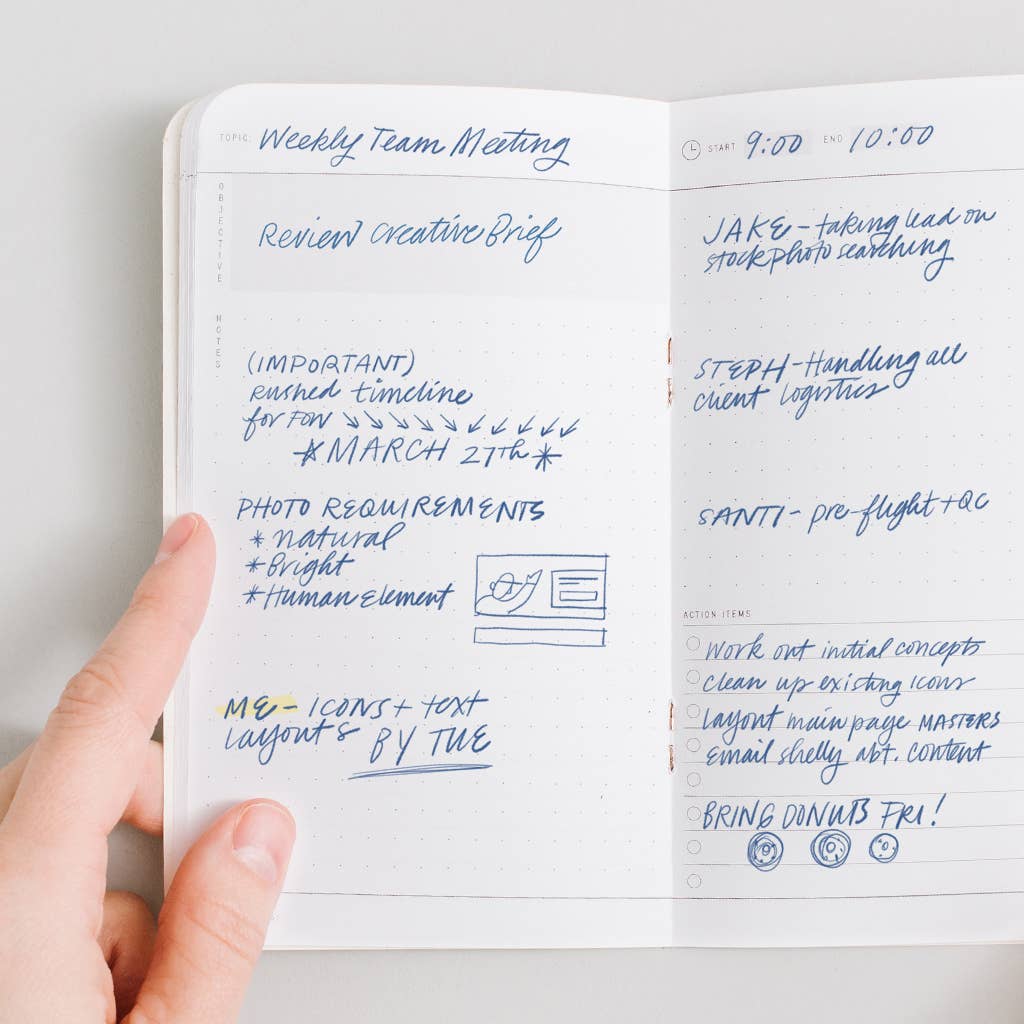 TOPIC: Weekly Team Meeting
OBJECTIVE
Review Creative Brief
NOTES
(IMPORTANT)
Rushed timeline
for FOW
*MARCH 27th*
PHOTO REQUIREMENTS
*natural
*Bright
*Human Element
ME - ICONS + text
layouts BY TUE
START 9:00 END 10:00
JAKE - taking lead on
stock photo searching
STEPH - Handling all
client logistics
SANTI - pre-flight + QC
ACTION ITEMS
Work out initial concepts
Clean up existing icons
Layout main page MASTERS
Email shelly abt. content
BRING DONUTS FRI!